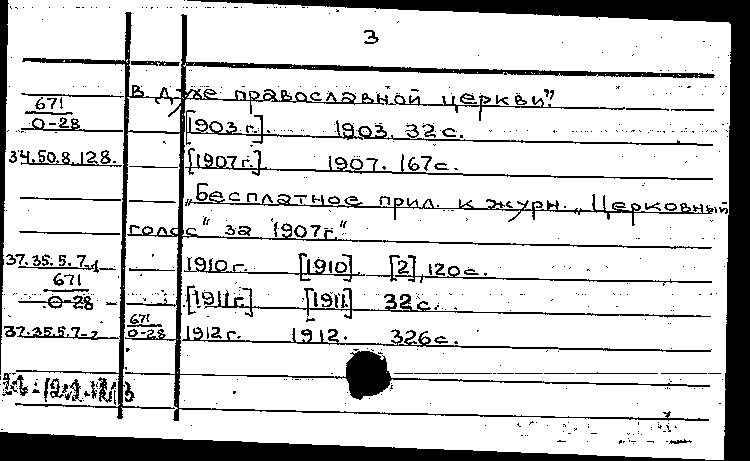 3
в духе православной церкви".
671
0-28 [1903 г.]. 1903. 32 с.
34.50.8.128. [1907 г.] 1907. 167 с.
„Бесплатное прил. к журн. „Церковный
голос" за 1907 г."
37.35.5.7-1 1910 г. [1910] [2], 120 с.
671
0-28 [1911 г.] [1911] 32 с.
37.35.5.7-2 671
0-28 1912 г. 1912. 326 с.